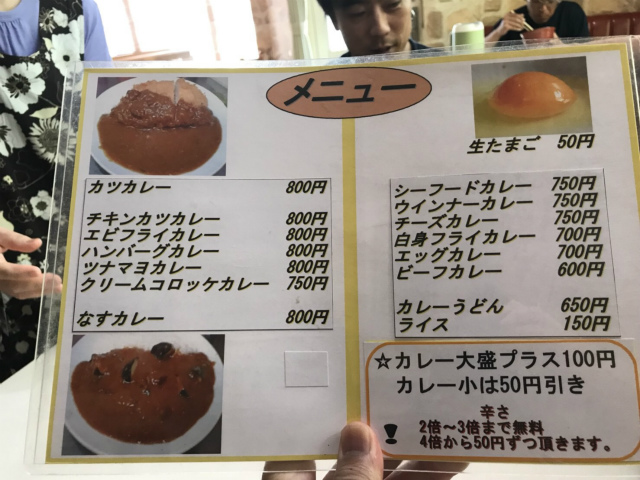 メニュー
カツカレー 800円
チキンカツカレー 800円
エビフライカレー 800円
ハンバーグカレー 800円
ツナマヨカレー 800円
クリームコロッケカレー 750円
なすカレー 800円
生たまご 50円
シーフードカレー 750円
ウインナーカレー 750円
チーズカレー 750円
白身フライカレー 700円
エッグカレー 700円
ビーフカレー 600円
カレーうどん 650円
ライス 150円
☆カレー大盛プラス100円
カレー小は50円引き
辛さ
2倍～3倍まで無料
4倍から50円ずつ頂きます。